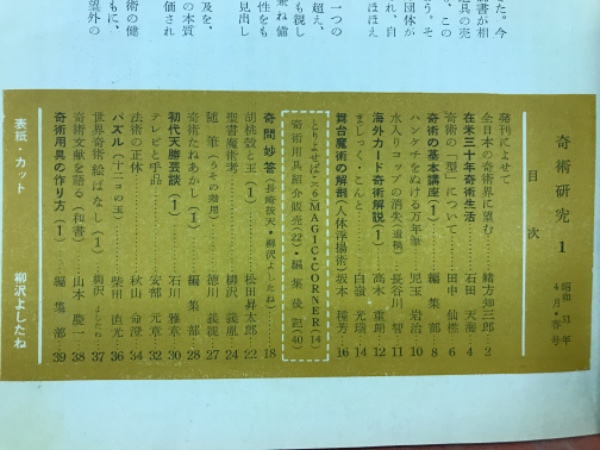 した。今
書が相
具の売
う。そ
、この
団体が
れ、自
ほほえ
一つの
超え、
も親し
兼ね備
性をも
見出し
及を、
の本質
価され
術の健
もに、
望外の
奇術研究 1
昭和31年
4月・春号
目次
発刊によせて
全日本の奇術界に望む 緒方知三郎 2
在米三十年奇術生活 石田天海 4
奇術の一型について 田中仙樵 6
奇術の基本講座(1) 編集部 8
ハンケチをぬける万年筆 児玉岩治 10
水入りコップの消失(遺稿) 長谷川智 11
海外カード奇術解説(1) 高木重朗 12
ましっく・こんと 白嶺光瑞 14
舞台魔術の解剖(人体浮揚術) 坂本種芳 16
とりよせば・ス6 MAGIC・CORNER(14)
奇術用具紹介販売(22)・編集後記(40)
奇問妙答(長崎抜天・柳沢よしたね) 18
胡桃殻と玉(1) 松田昇太郎 22
聖書魔術考 柳沢義胤 24
随筆(うその効用) 徳川義親 27
奇術たねあかし(1) 編集部 28
初代天勝芸談(1) 石川雅章 30
テレビと手品 安部元章 32
法術の正体 秋山命澄 34
パズル(十二コの玉) 柴田直光 36
世界奇術絵ばなし(1) 柳沢よしたね 37
奇術文献を語る(和書) 山本慶一 38
奇術用具の作り方(1) 編集部 39
表紙・カット 柳沢よしたね